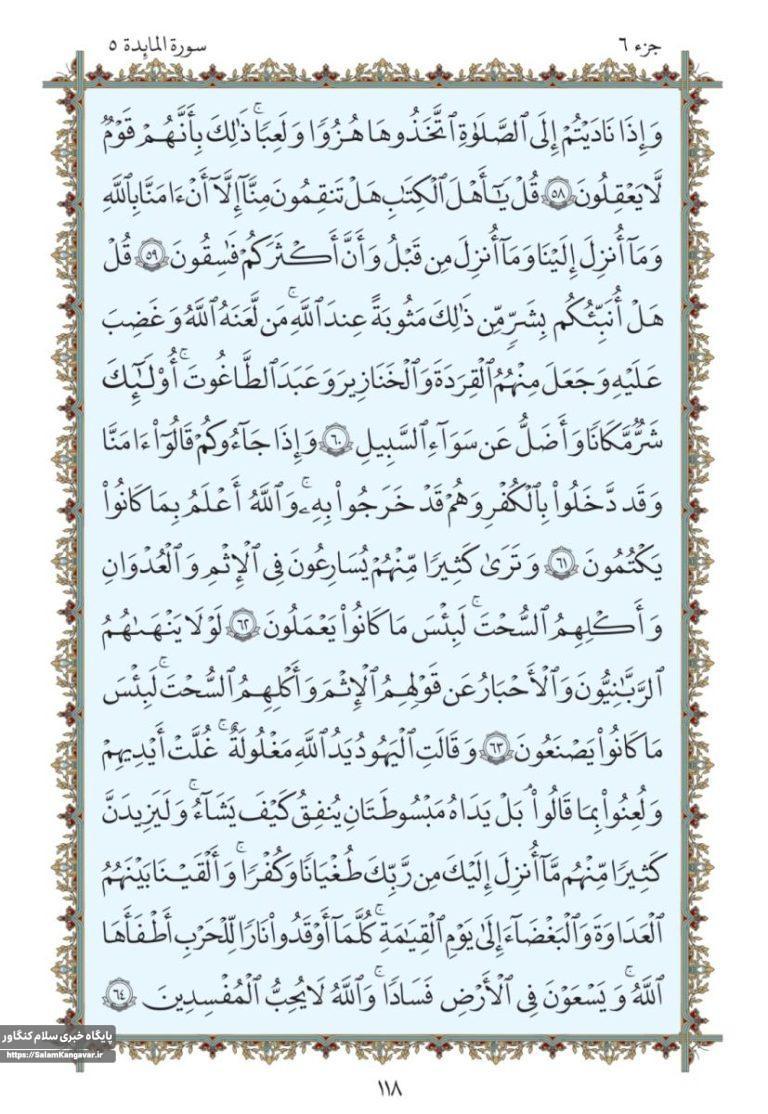 جزء ٦
سورة المائدة ٥
وَإِذَا نَادَيْتُمْ إِلَى ٱلصَّلَوٰةِ ٱتَّخَذُوهَا هُزُوًا وَلَعِبًا ۚ ذَٰلِكَ بِأَنَّهُمْ قَوْمٌ
لَّا يَعْقِلُونَ ٥٨ قُلْ يَٰٓأَهْلَ ٱلْكِتَٰبِ هَلْ تَنقِمُونَ مِنَّآ إِلَّآ أَنْ ءَامَنَّا بِٱللَّهِ
وَمَآ أُنزِلَ إِلَيْنَا وَمَآ أُنزِلَ مِن قَبْلُ وَأَنَّ أَكْثَرَكُمْ فَٰسِقُونَ ٥٩ قُلْ
هَلْ أُنَبِّئُكُم بِشَرٍّ مِّن ذَٰلِكَ مَثُوبَةً عِندَ ٱللَّهِ ۚ مَن لَّعَنَهُ ٱللَّهُ وَغَضِبَ
عَلَيْهِ وَجَعَلَ مِنْهُمُ ٱلْقِرَدَةَ وَٱلْخَنَازِيرَ وَعَبَدَ ٱلطَّٰغُوتَ ۚ أُو۟لَٰٓئِكَ
شَرٌّ مَّكَانًا وَأَضَلُّ عَن سَوَآءِ ٱلسَّبِيلِ ٦٠ وَإِذَا جَآءُوكُمْ قَالُوٓا۟ ءَامَنَّا
وَقَد دَّخَلُوا۟ بِٱلْكُفْرِ وَهُمْ قَدْ خَرَجُوا۟ بِهِۦ ۚ وَٱللَّهُ أَعْلَمُ بِمَا كَانُوا۟
يَكْتُمُونَ ٦١ وَتَرَىٰ كَثِيرًا مِّنْهُمْ يُسَٰرِعُونَ فِى ٱلْإِثْمِ وَٱلْعُدْوَٰنِ
وَأَكْلِهِمُ ٱلسُّحْتَ ۚ لَبِئْسَ مَا كَانُوا۟ يَعْمَلُونَ ٦٢ لَوْلَا يَنْهَىٰهُمُ
ٱلرَّبَّٰنِيُّونَ وَٱلْأَحْبَارُ عَن قَوْلِهِمُ ٱلْإِثْمَ وَأَكْلِهِمُ ٱلسُّحْتَ ۚ لَبِئْسَ
مَا كَانُوا۟ يَصْنَعُونَ ٦٣ وَقَالَتِ ٱلْيَهُودُ يَدُ ٱللَّهِ مَغْلُولَةٌ ۚ غُلَّتْ أَيْدِيهِمْ
وَلُعِنُوا۟ بِمَا قَالُوا۟ ۘ بَلْ يَدَاهُ مَبْسُوطَتَانِ يُنفِقُ كَيْفَ يَشَآءُ ۚ وَلَيَزِيدَنَّ
كَثِيرًا مِّنْهُم مَّآ أُنزِلَ إِلَيْكَ مِن رَّبِّكَ طُغْيَٰنًا وَكُفْرًا ۚ وَأَلْقَيْنَا بَيْنَهُمُ
ٱلْعَدَٰوَةَ وَٱلْبَغْضَآءَ إِلَىٰ يَوْمِ ٱلْقِيَٰمَةِ ۚ كُلَّمَآ أَوْقَدُوا۟ نَارًا لِّلْحَرْبِ أَطْفَأَهَا
ٱللَّهُ ۚ وَيَسْعَوْنَ فِى ٱلْأَرْضِ فَسَادًا ۚ وَٱللَّهُ لَا يُحِبُّ ٱلْمُفْسِدِينَ ٦٤
پایگاه خبری سلام کنگاور
https://SalamKangavar.ir
١١٨